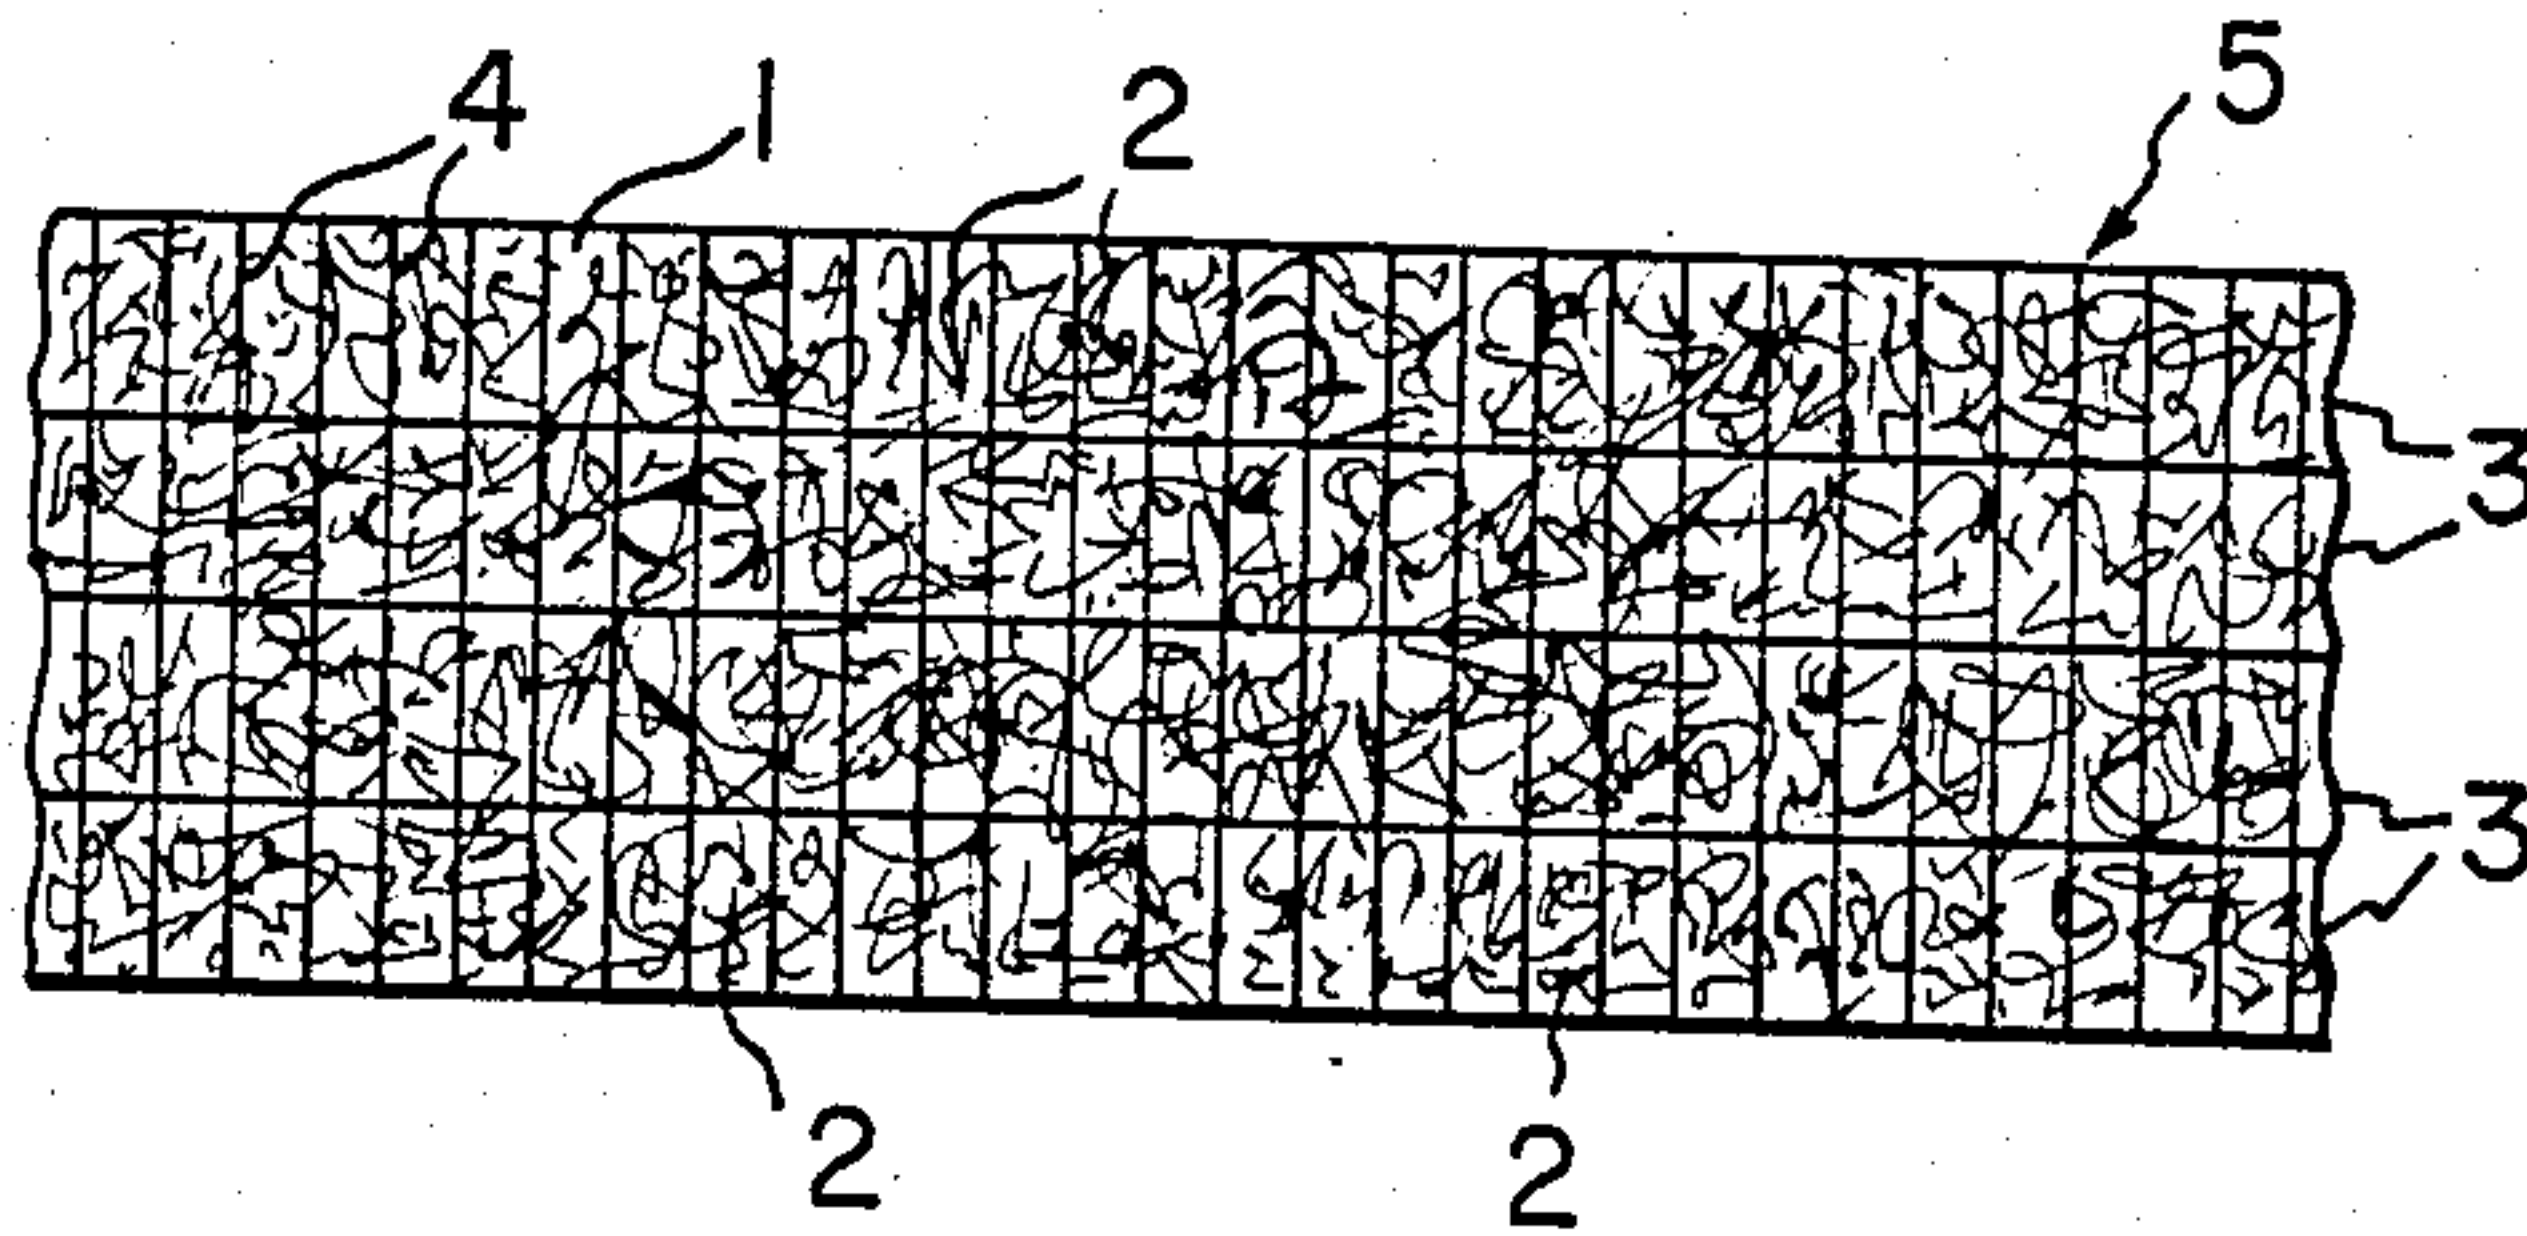 4 1 2 5
3
3
2 2